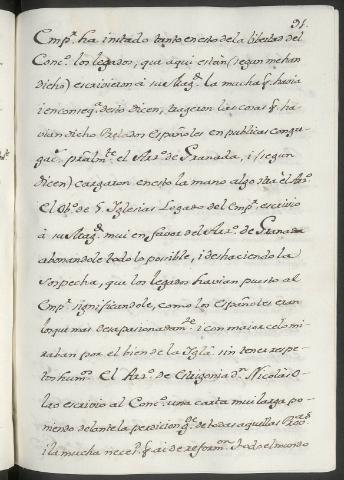 91.
Emp.r ha instado tanto en esto de la libertad del
Conc.o los legados, que aqui estàn (segun me han
dicho) escrivieron à su Mag.d la mucha q. havia
i en conseq.a desto dicen, trageron las cosas q. ha-
vian dicho Prelados Españoles en publicas congre-
gac.s pralm.te el Arz.o de Granada, i (segun
dicen) cargaron en esto la mano algo contra el Arz.o
El Ob.o de 5 Iglesias Legado del Emp.r escrivio
à su Mag.d mui en favor del Arz.o de Granada
abonandole todo lo posible, i deshaciendo la
sospecha, que los legados havian puesto al
Emp.r significandole, como los Españoles eran
los que mas desapasionadam.te i con maior celo mi-
raban por el bien de la Igl.a sin tener respe-
tos hum.s El Arz.o de Estrigonia d.n Nicolàs O-
lao escrivio al Conc.o una carta mui larga po-
niendo delante la perdicion g.l de todas aquellas Prov.as
i la mucha neces.d q. ai de reform.n i todo el mundo